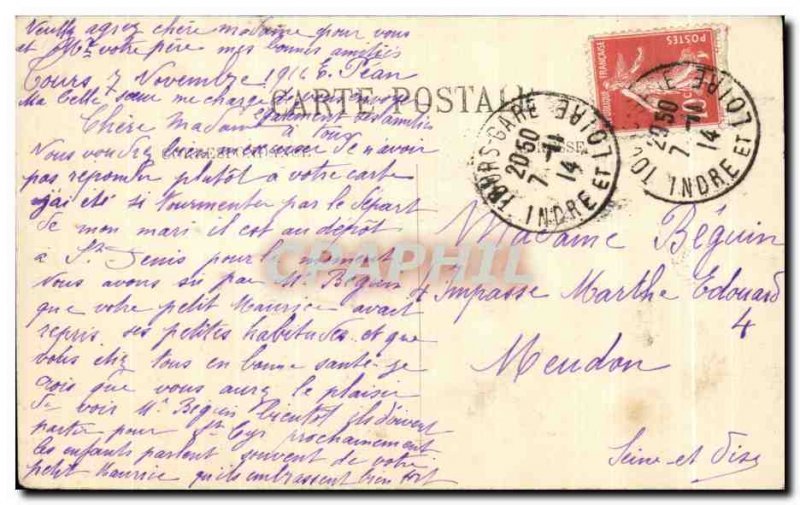 Veuillez agréez chère madame pour vous
et Mr votre père mes bonnes amitiés
Tours 7 Novembre 1914 E. Péan
Ma belle soeur me charge de vous envoyer
également ses amitiés
à tous
CARTE POSTALE
CORRESPONDANCE
Chère Madame
Vous voudrez bien m'excuser de n'avoir
pas repondre plutôt à votre carte
j'ai été si tourmenter par le départ
de mon mari il est au dépôt
à St Denis pour le moment
Nous avons su par Mr Béguin
que votre petit Maurice avait
repris ses petites habitudes et que
vous étiez tous en bonne santé je
crois que vous aurez le plaisir
de voir Mr Béguin bientôt ils doivent
partir pour St Cyr prochainement
les enfants parlent souvent de votre
petit Maurice qu'ils embrassent bien fort
POSTES
FRANÇAISE
10
TOURS-GARE
20 50
7 -11
14
INDRE ET LOIRE
20 50
7 -11
14
INDRE ET LOIRE
Madame Béguin
4 Impasse Marthe Edouard
4
Meudon
Seine et Oise
CPAPHIL